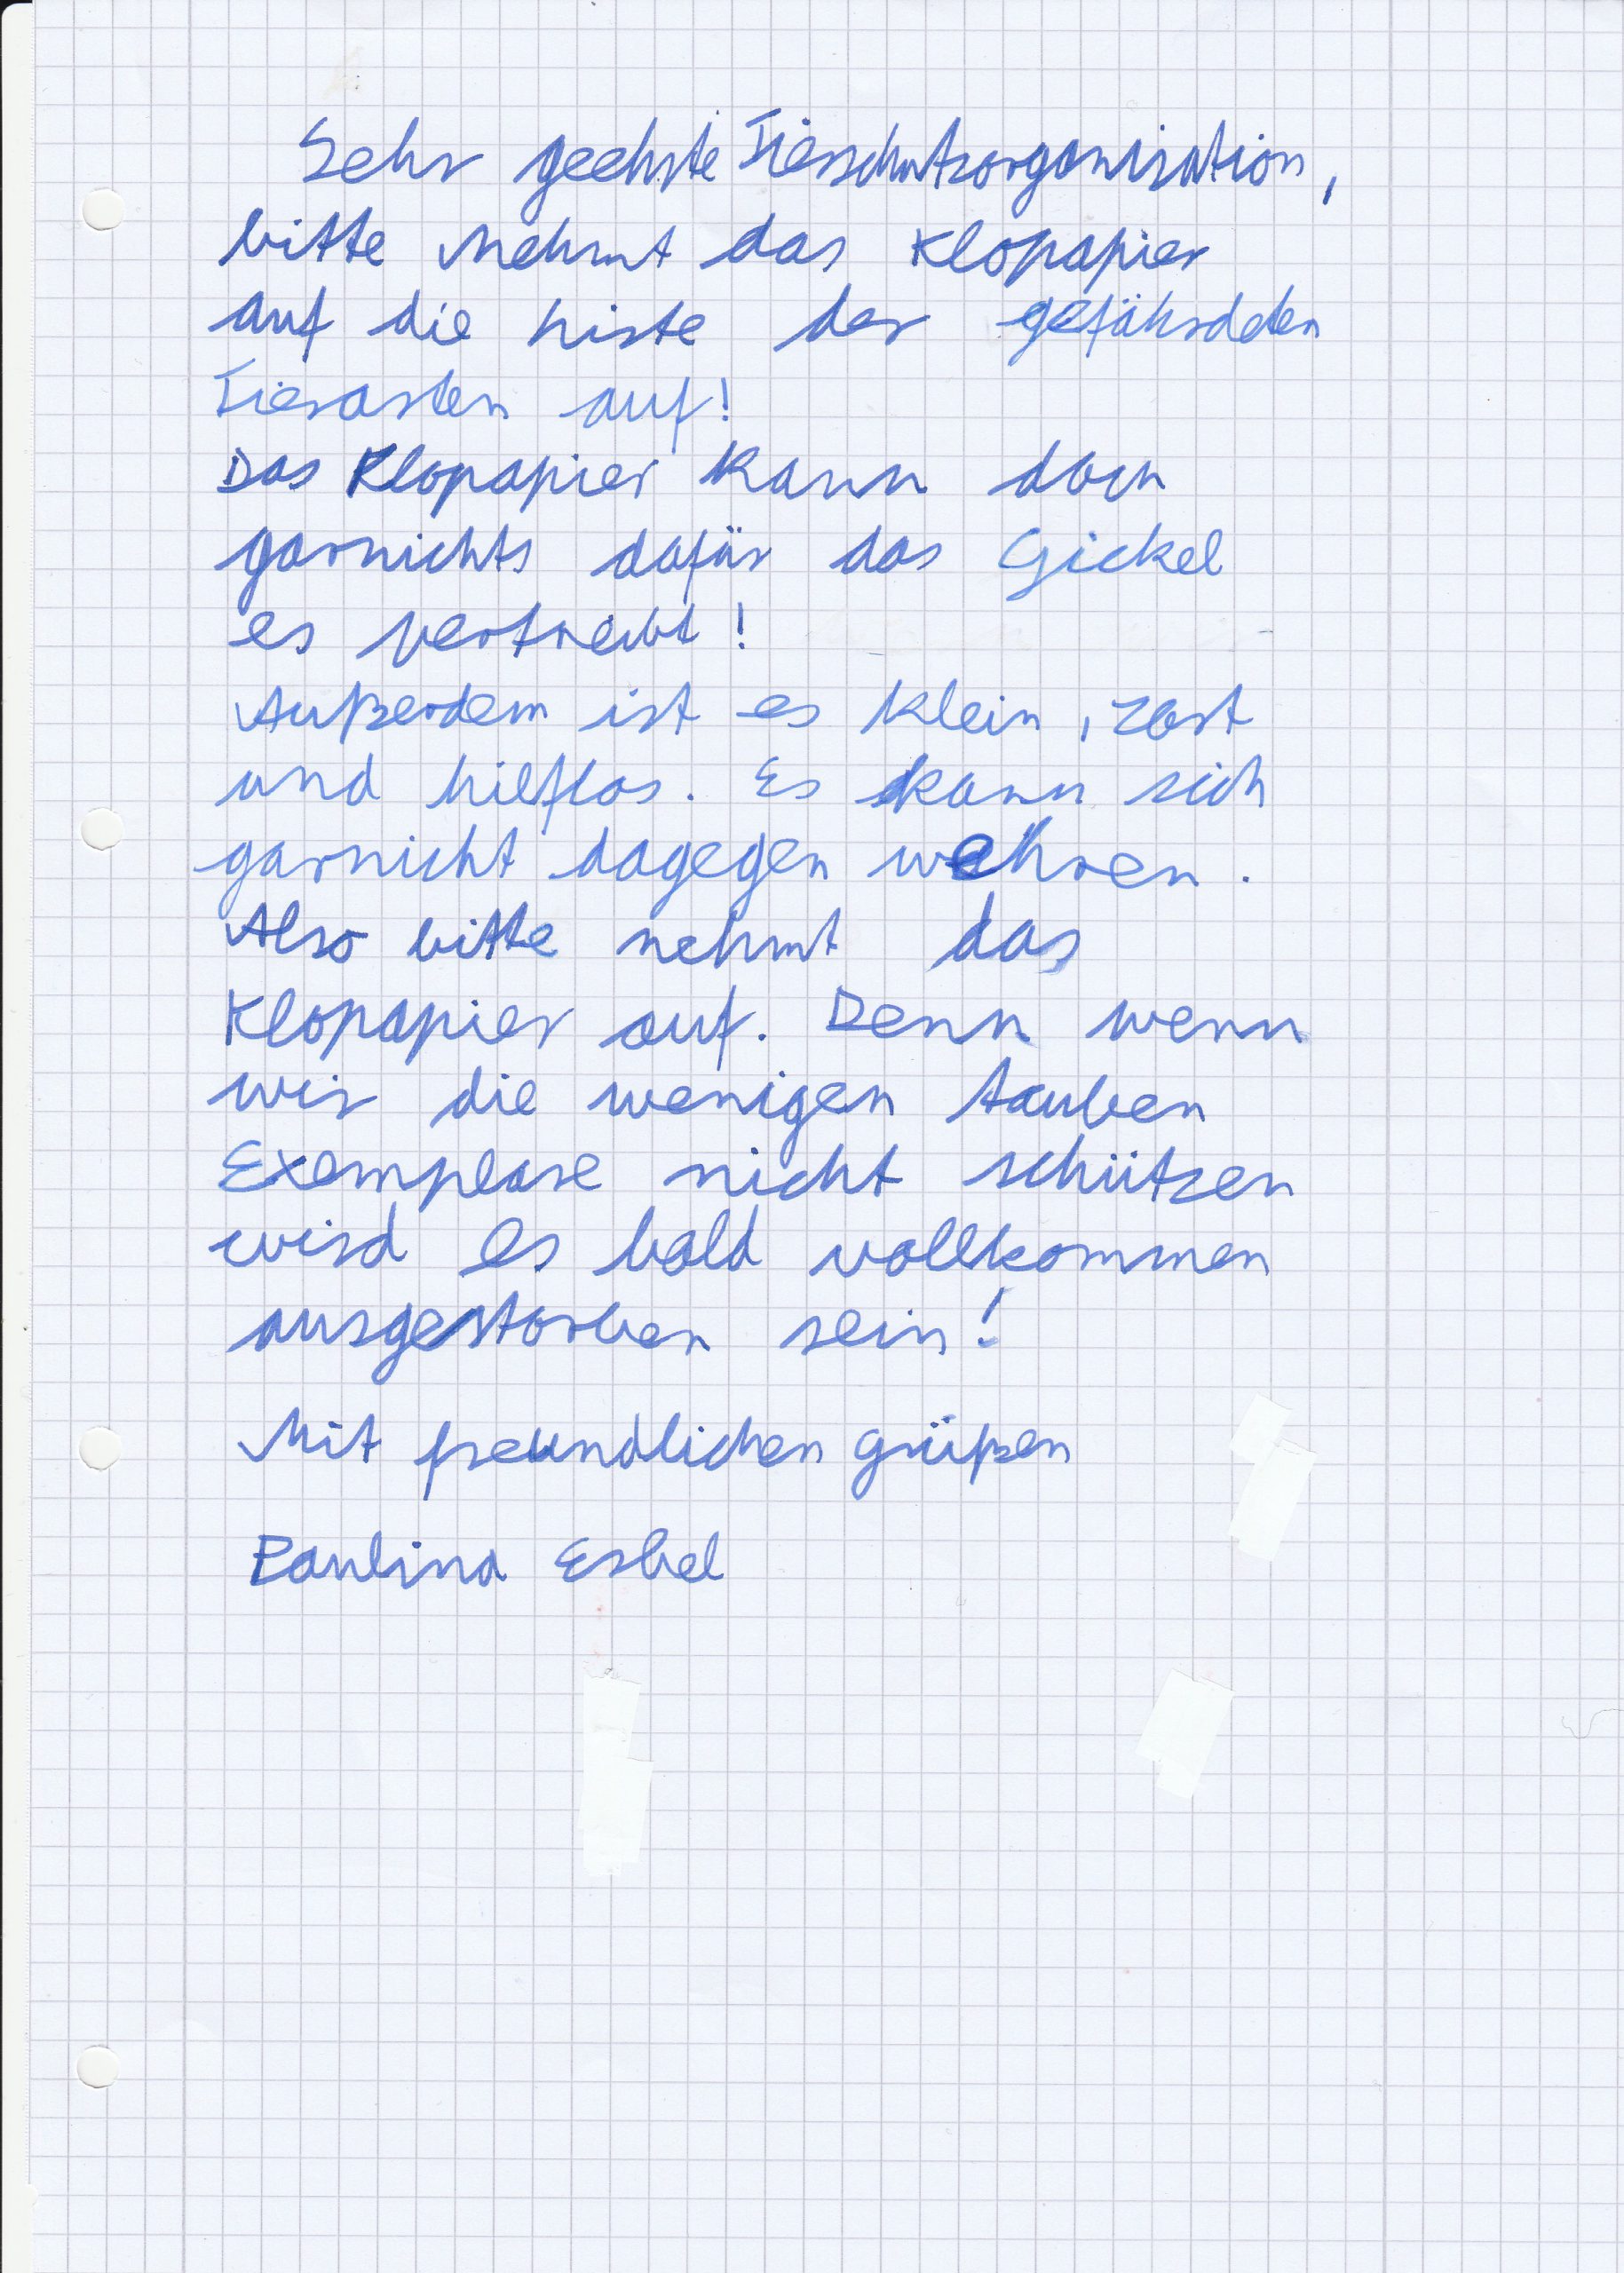 Sehr geehrte Tierschutzorganisation,
bitte Nehmt das Klopapier
auf die Liste der gefährdeten
Tierarten auf!
Das Klopapier kann doch
garnichts dafür das Gickel
es vertreibt!
Außerdem ist es klein, zart
und hilflos. Es kann sich
garnicht dagegen wehren.
Also bitte nehmt das
Klopapier auf. Denn wenn
wir die wenigen tauben
Exemplare nicht schützen
wird es bald vollkommen
ausgestorben sein!
Mit freundlichen grüßen
Paulina Erbel